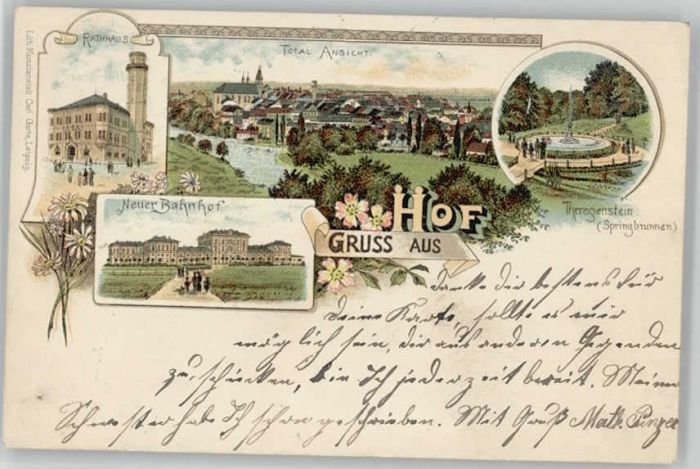 RATHHAUS
TOTAL ANSICHT.
Lith. Kunstanstalt Carl Garte, Leipzig.
Theresenstein
(Springbrunnen)
Neuer Bahnhof
HOF
GRUSS AUS
Danke dir bestens für
deine Karte, sollte es mir
möglich sein, dir aus anderen Gegenden
zu schicken, bin Ich jederzeit bereit. Meiner
Schwester habe Ich schon geschrieben. Mit Gruß Math.